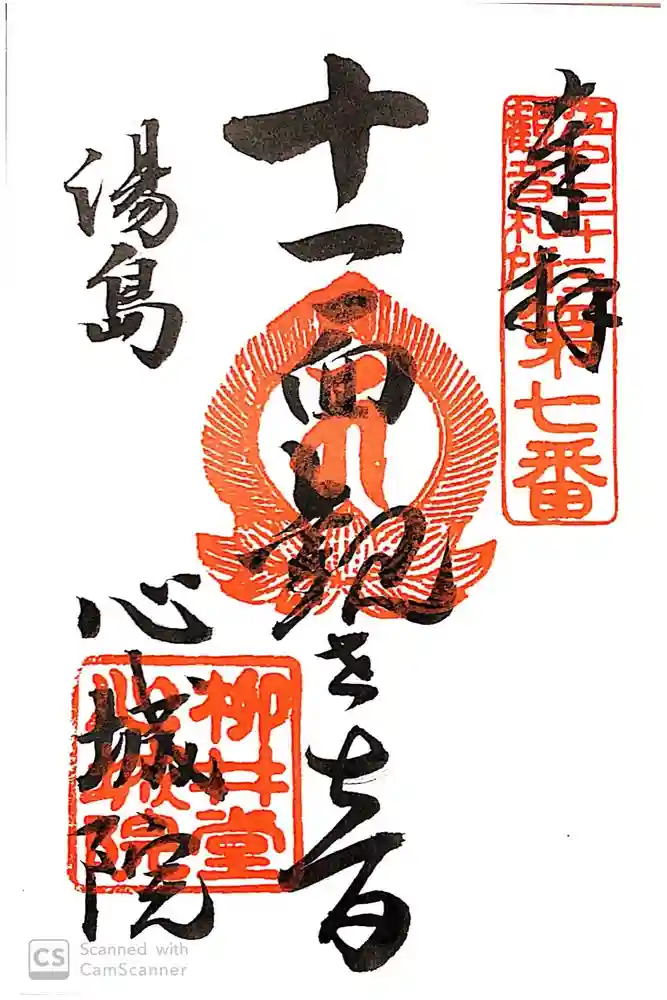 奉拝
江戸三十三
観音札所
第七番
十一面観世音
湯島
心城院
柳井堂
心城院
Scanned with
CamScanner
CS